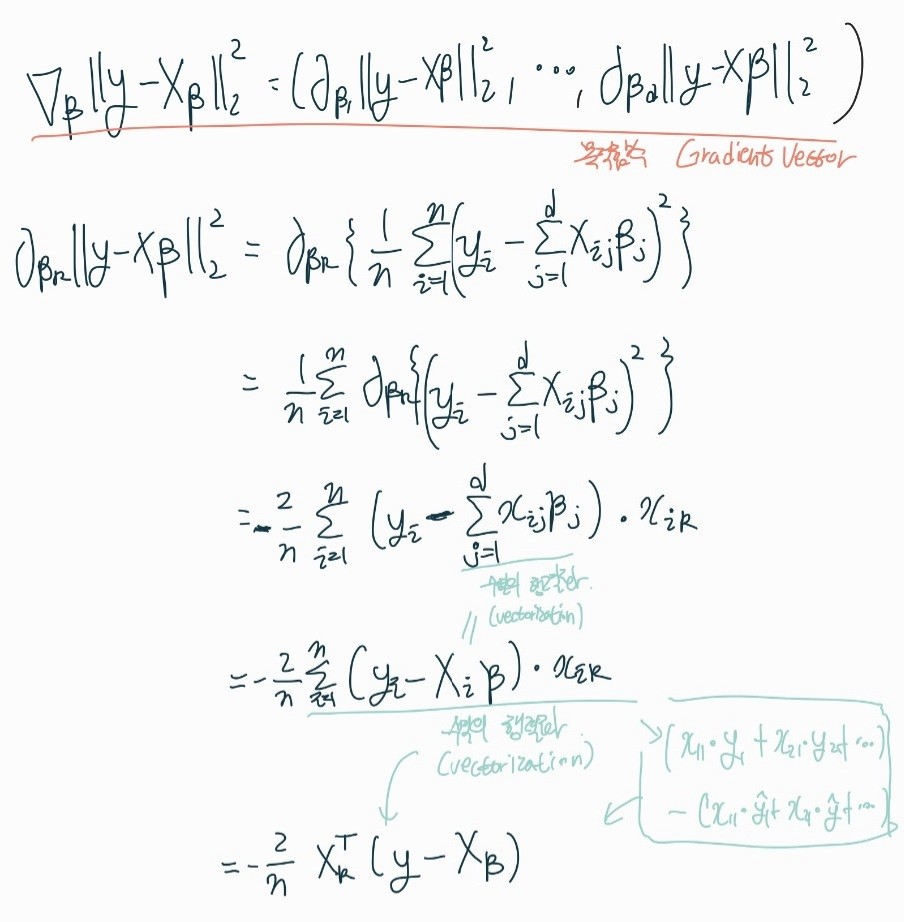 ∇β||y-Xβ||₂² = (∂β₁||y-Xβ||₂², ⋯, ∂βd||y-Xβ||₂²)
Gradients Vector
∂βk||y-Xβ||₂² = ∂βk{1/n Σ_{i=1}^{n}(y_i - Σ_{j=1}^{d} X_{ij}β_j)²}
= 1/n Σ_{i=1}^{n} ∂βk{(y_i - Σ_{j=1}^{d} X_{ij}β_j)²}
= -2/n Σ_{i=1}^{n} (y_i - Σ_{j=1}^{d} x_{ij}β_j) · x_{ik}
(vectorization)
= -2/n Σ_{i=1}^{n} (y_i - X_iβ) · x_{ik}
수식의 행렬화
(vectorization)
(x₁₁·y₁ + x₂₁·y₂+ ⋯)
- (x₁₁·ŷ₁+ x₂₁·ŷ+⋯)
= -2/n X_k^T (y - Xβ)